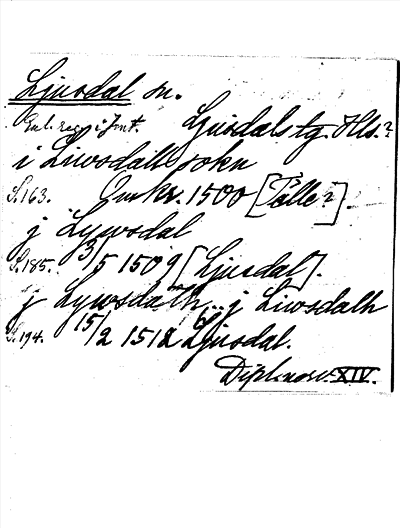 Ljusdal sn.
Enl. reg. i Jmt. Ljusdals tg. Hls.?
i Liwsdall sokn
S. 163. Omkr. 1500 [Tälle?].
j Lywsdal
S. 185. 3/5 1509 [Ljusdal].
j Lywsdalh.. j Liwsdalh
S. 194. 15/2 1512 Ljusdal.
Dipl. norv. XIV.